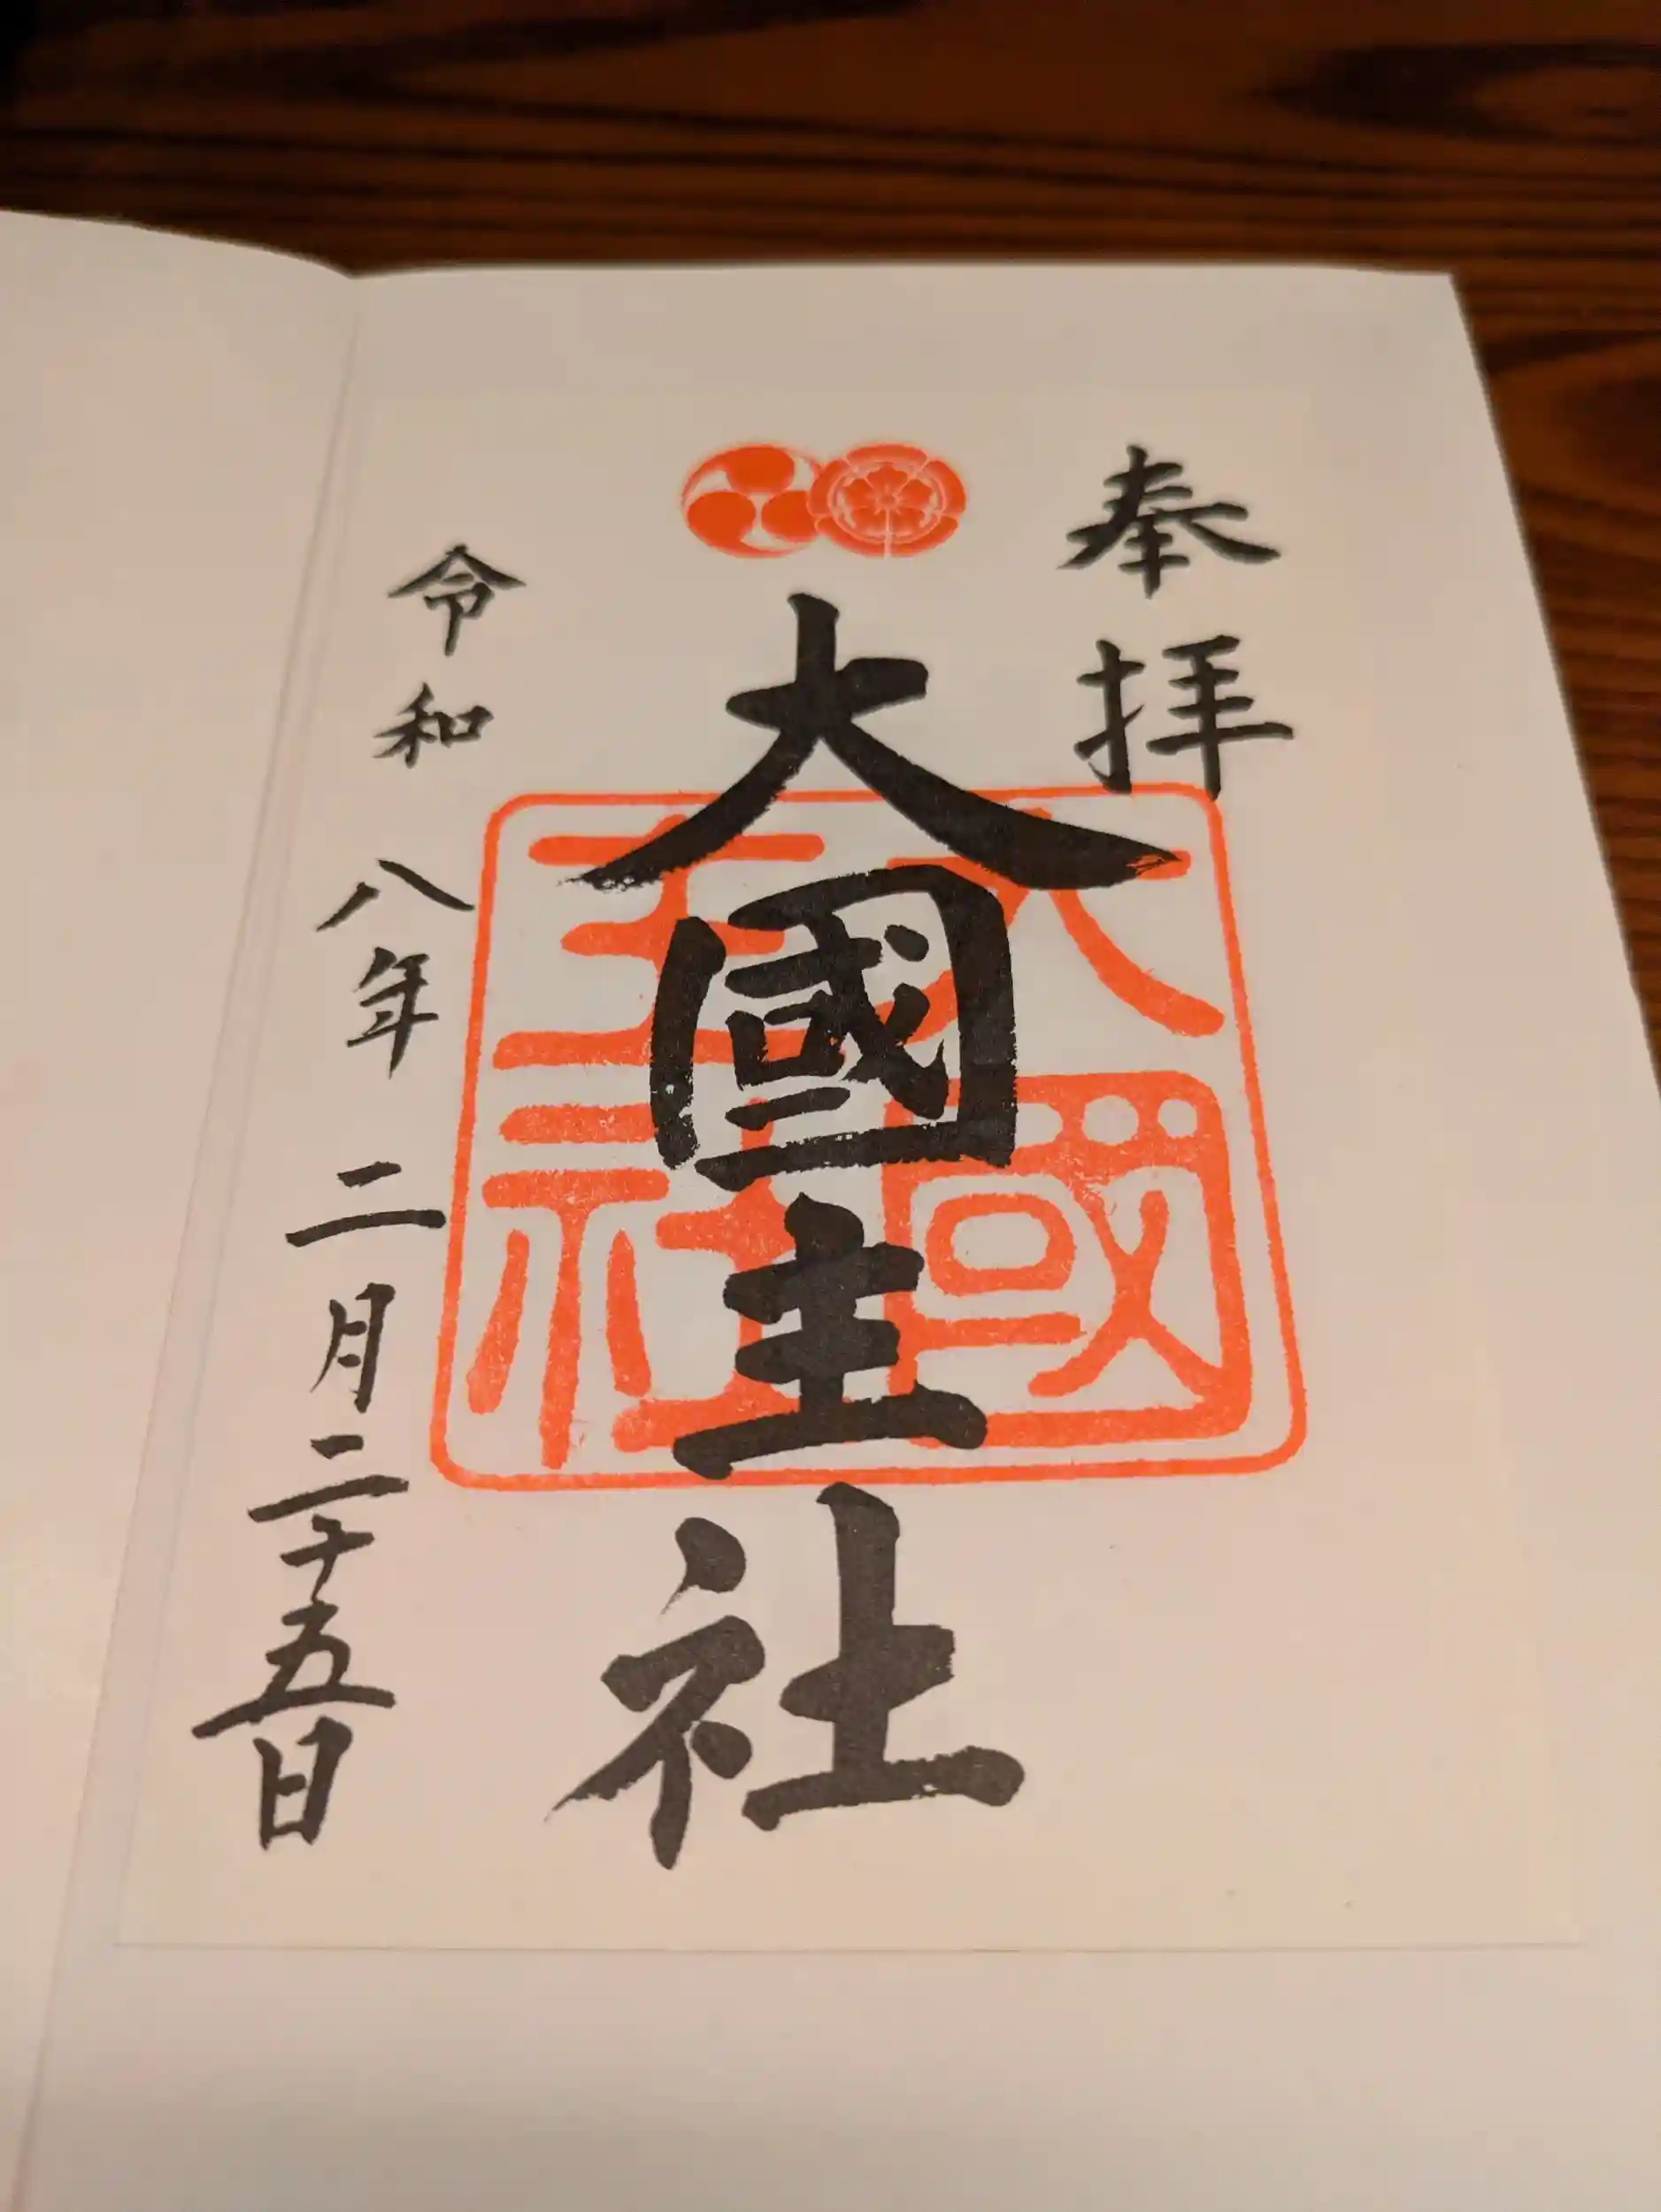 奉拝
大國主社
大國主社
令和八年二月二十五日